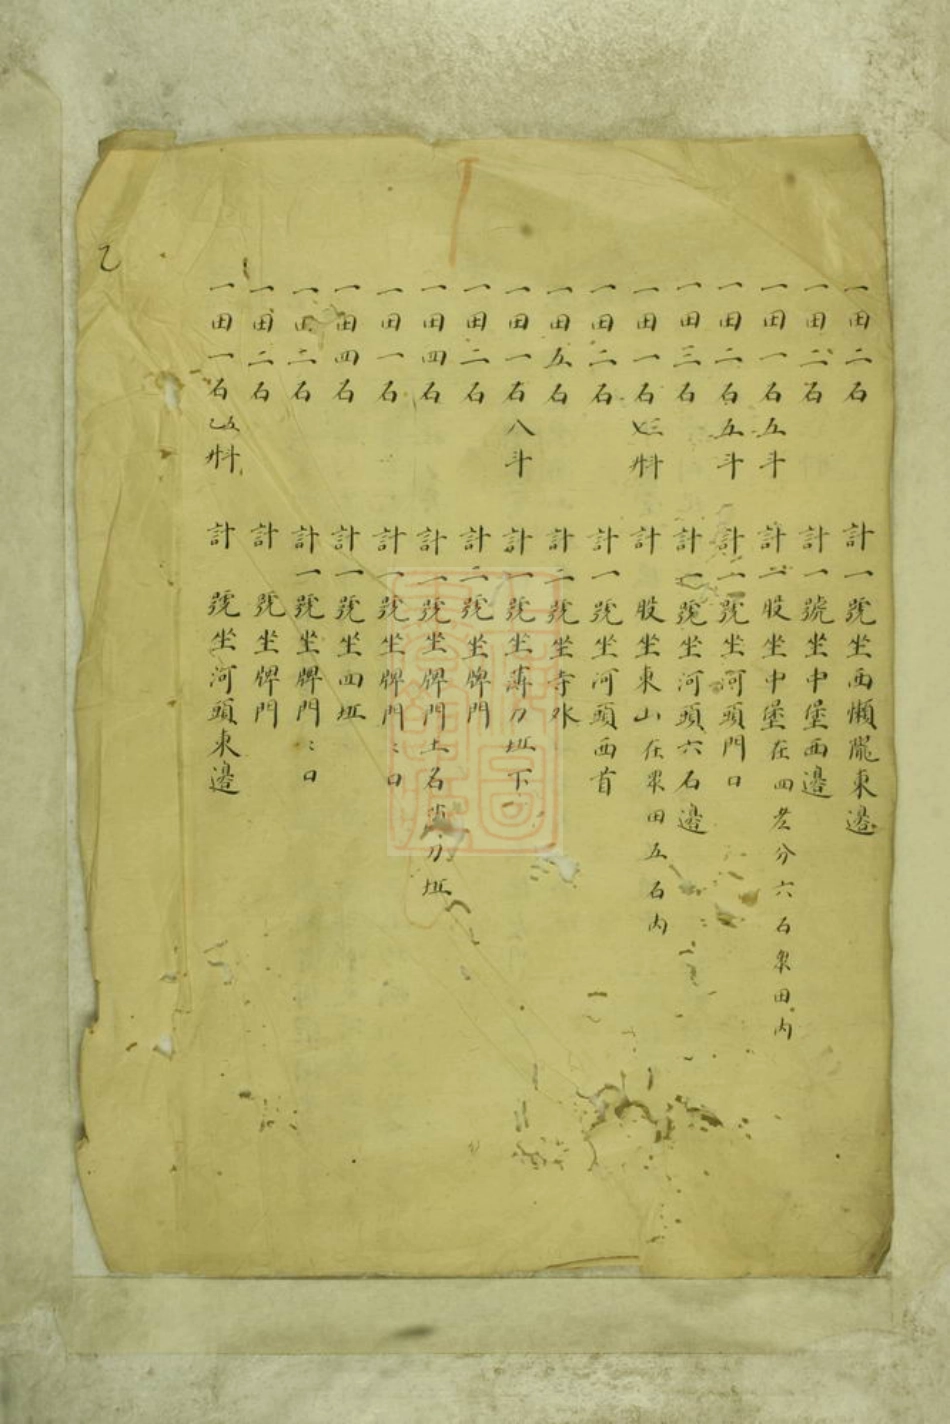 一田二石 計一號坐西懶隴東邊
一田二石 計一號坐中堡西邊
一田一石五斗 計二股坐中堡在四老分六石衆田內
一田二石五斗 計一號坐河頭門口
一田三石 計一號坐河頭六石邊
一田一石 計 股坐東山在衆田五石內
一田二石 計一號坐河頭西首
一田五石 計二號坐寺水
一田一石八斗 計一號坐 刀坵下
一田二石 計二號坐牌門
一田四石 計一號坐牌門土名 刀坵
一田一石 計一號坐牌門：口
一田四石 計一號坐面坵
一田二石 計一號坐牌門：口
一田二石 計 號坐牌門
一田一石 計 號坐河頭東邊